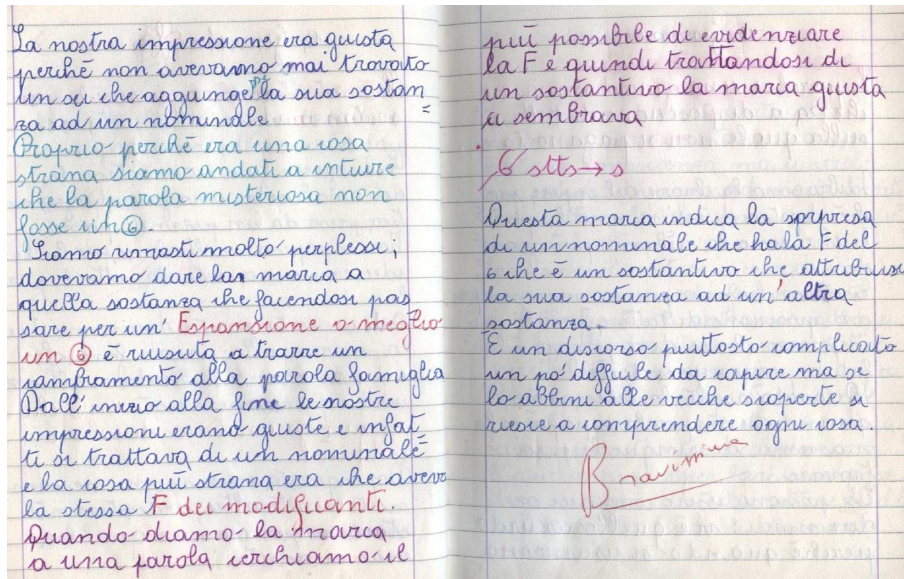 La nostra impressione era giusta
perché non avevamo mai trovato
un sei che aggiunge la sua sostan
za ad un nominale
Proprio perché era una cosa
strana siamo andati a intuire
che la parola misteriosa non
fosse un 6.
Siamo rimasti molto perplessi;
dovevamo dare la marca a
quella sostanza che facendosi pas
sare per un' Espansione o meglio
un 6 è riuscita a trarre un
cambiamento alla parola famiglia
Dall'inizio alla fine le nostre
impressioni erano giuste e infat
ti si trattava di un nominale
e la cosa più strana era che aveva
la stessa F dei modificanti.
Quando diamo la marca
a una parola cerchiamo il
più possibile di evidenziare
la F e quindi trattandosi di
un sostantivo la marca giusta
ci sembrava
6 stts→s
Questa marca indica la sorpresa
di un nominale che ha la F del
6 che è un sostantivo che attribuisce
la sua sostanza ad un'altra
sostanza.
È un discorso piuttosto complicato
un po' difficile da capire ma se
lo abbini alle vecchie scoperte si
riesce a comprendere ogni cosa.
Bravissima